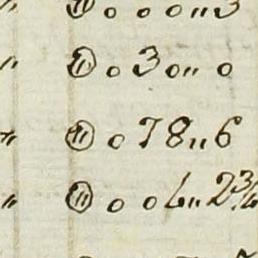 " ⑪ 0 0 0 " 3
" ⑪ 0 3 0 " 0
" ⑪ 0 7 8 " 6
" ⑪ 0 0 6 " 2¾